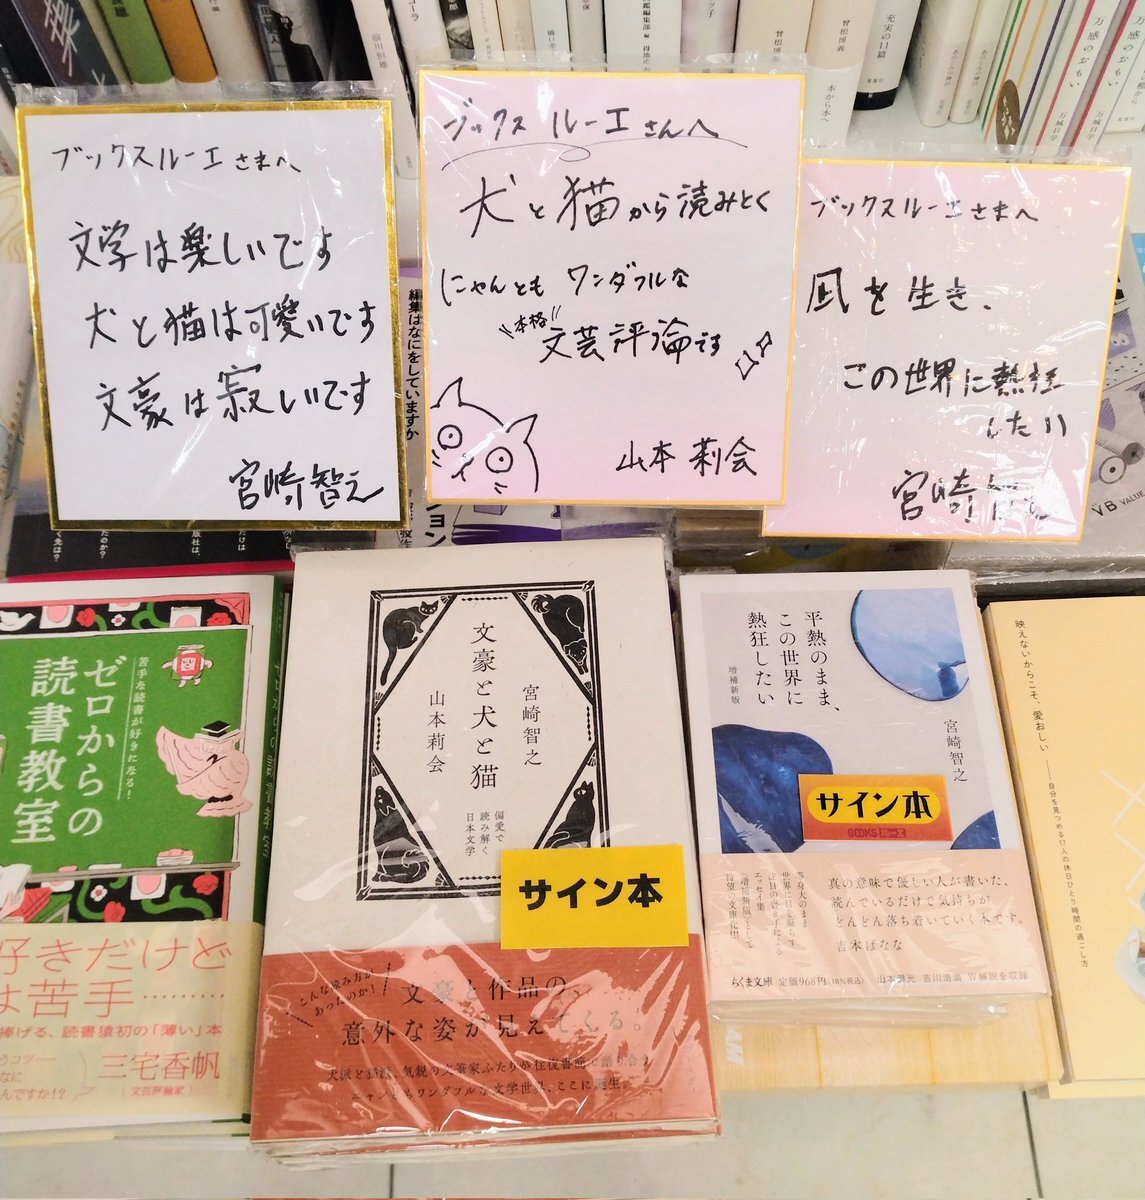 前川恒雄
曾根博義
本から本へ
充実の日
万感のおもい
万城目学
万感のおもい
万城目学
ブックスルーエさまへ
文学は楽しいです
犬と猫は可愛いです
文豪は寂しいです
宮崎智之
ブックスルーエさんへ
犬と猫から読みとく
にゃんとも ワンダフルな
"本格"
文芸評論です
山本莉会
ブックスルーエさまへ
凪を生き、
この世界に熱狂
したい
宮崎智之
編集はなにをしていますか
VALUE
苦手な読書が好きになる!
ゼロからの
読書教室
好きだけど
は苦手………
捧げる、読書猿初の「薄い」本
三宅香帆
(文芸評論家)
文豪と犬と猫
偏愛で
読み解く
日本文学
宮崎智之
山本莉会
サイン本
こんな読み方が
あったのか!
文豪と作品の、
意外な姿が見えてくる。
犬派と猫派、気鋭の文筆家ふたりが往復書簡で語り合う
ニャンともワンダフルな文学世界、ここに誕生。
平熱のまま、
この世界に
熱狂したい
増補新版
宮崎智之
サイン本
BOOKS ルーエ
等身大のまま
世界に目を凝らす
注目の書き手による
エッセイ集
《増補新版》として
待望の文庫化!!!
真の意味で優しい人が書いた、
読んでいるだけで気持ちが
どんどん落ち着いていく本です。
吉本ばなな
ちくま文庫 定価968円(10%税込)
山本貴光 吉川浩満 W解説を収録
映えないからこそ、愛おしい
自分を見つめる17人の休日ひとり時間の過ごし方